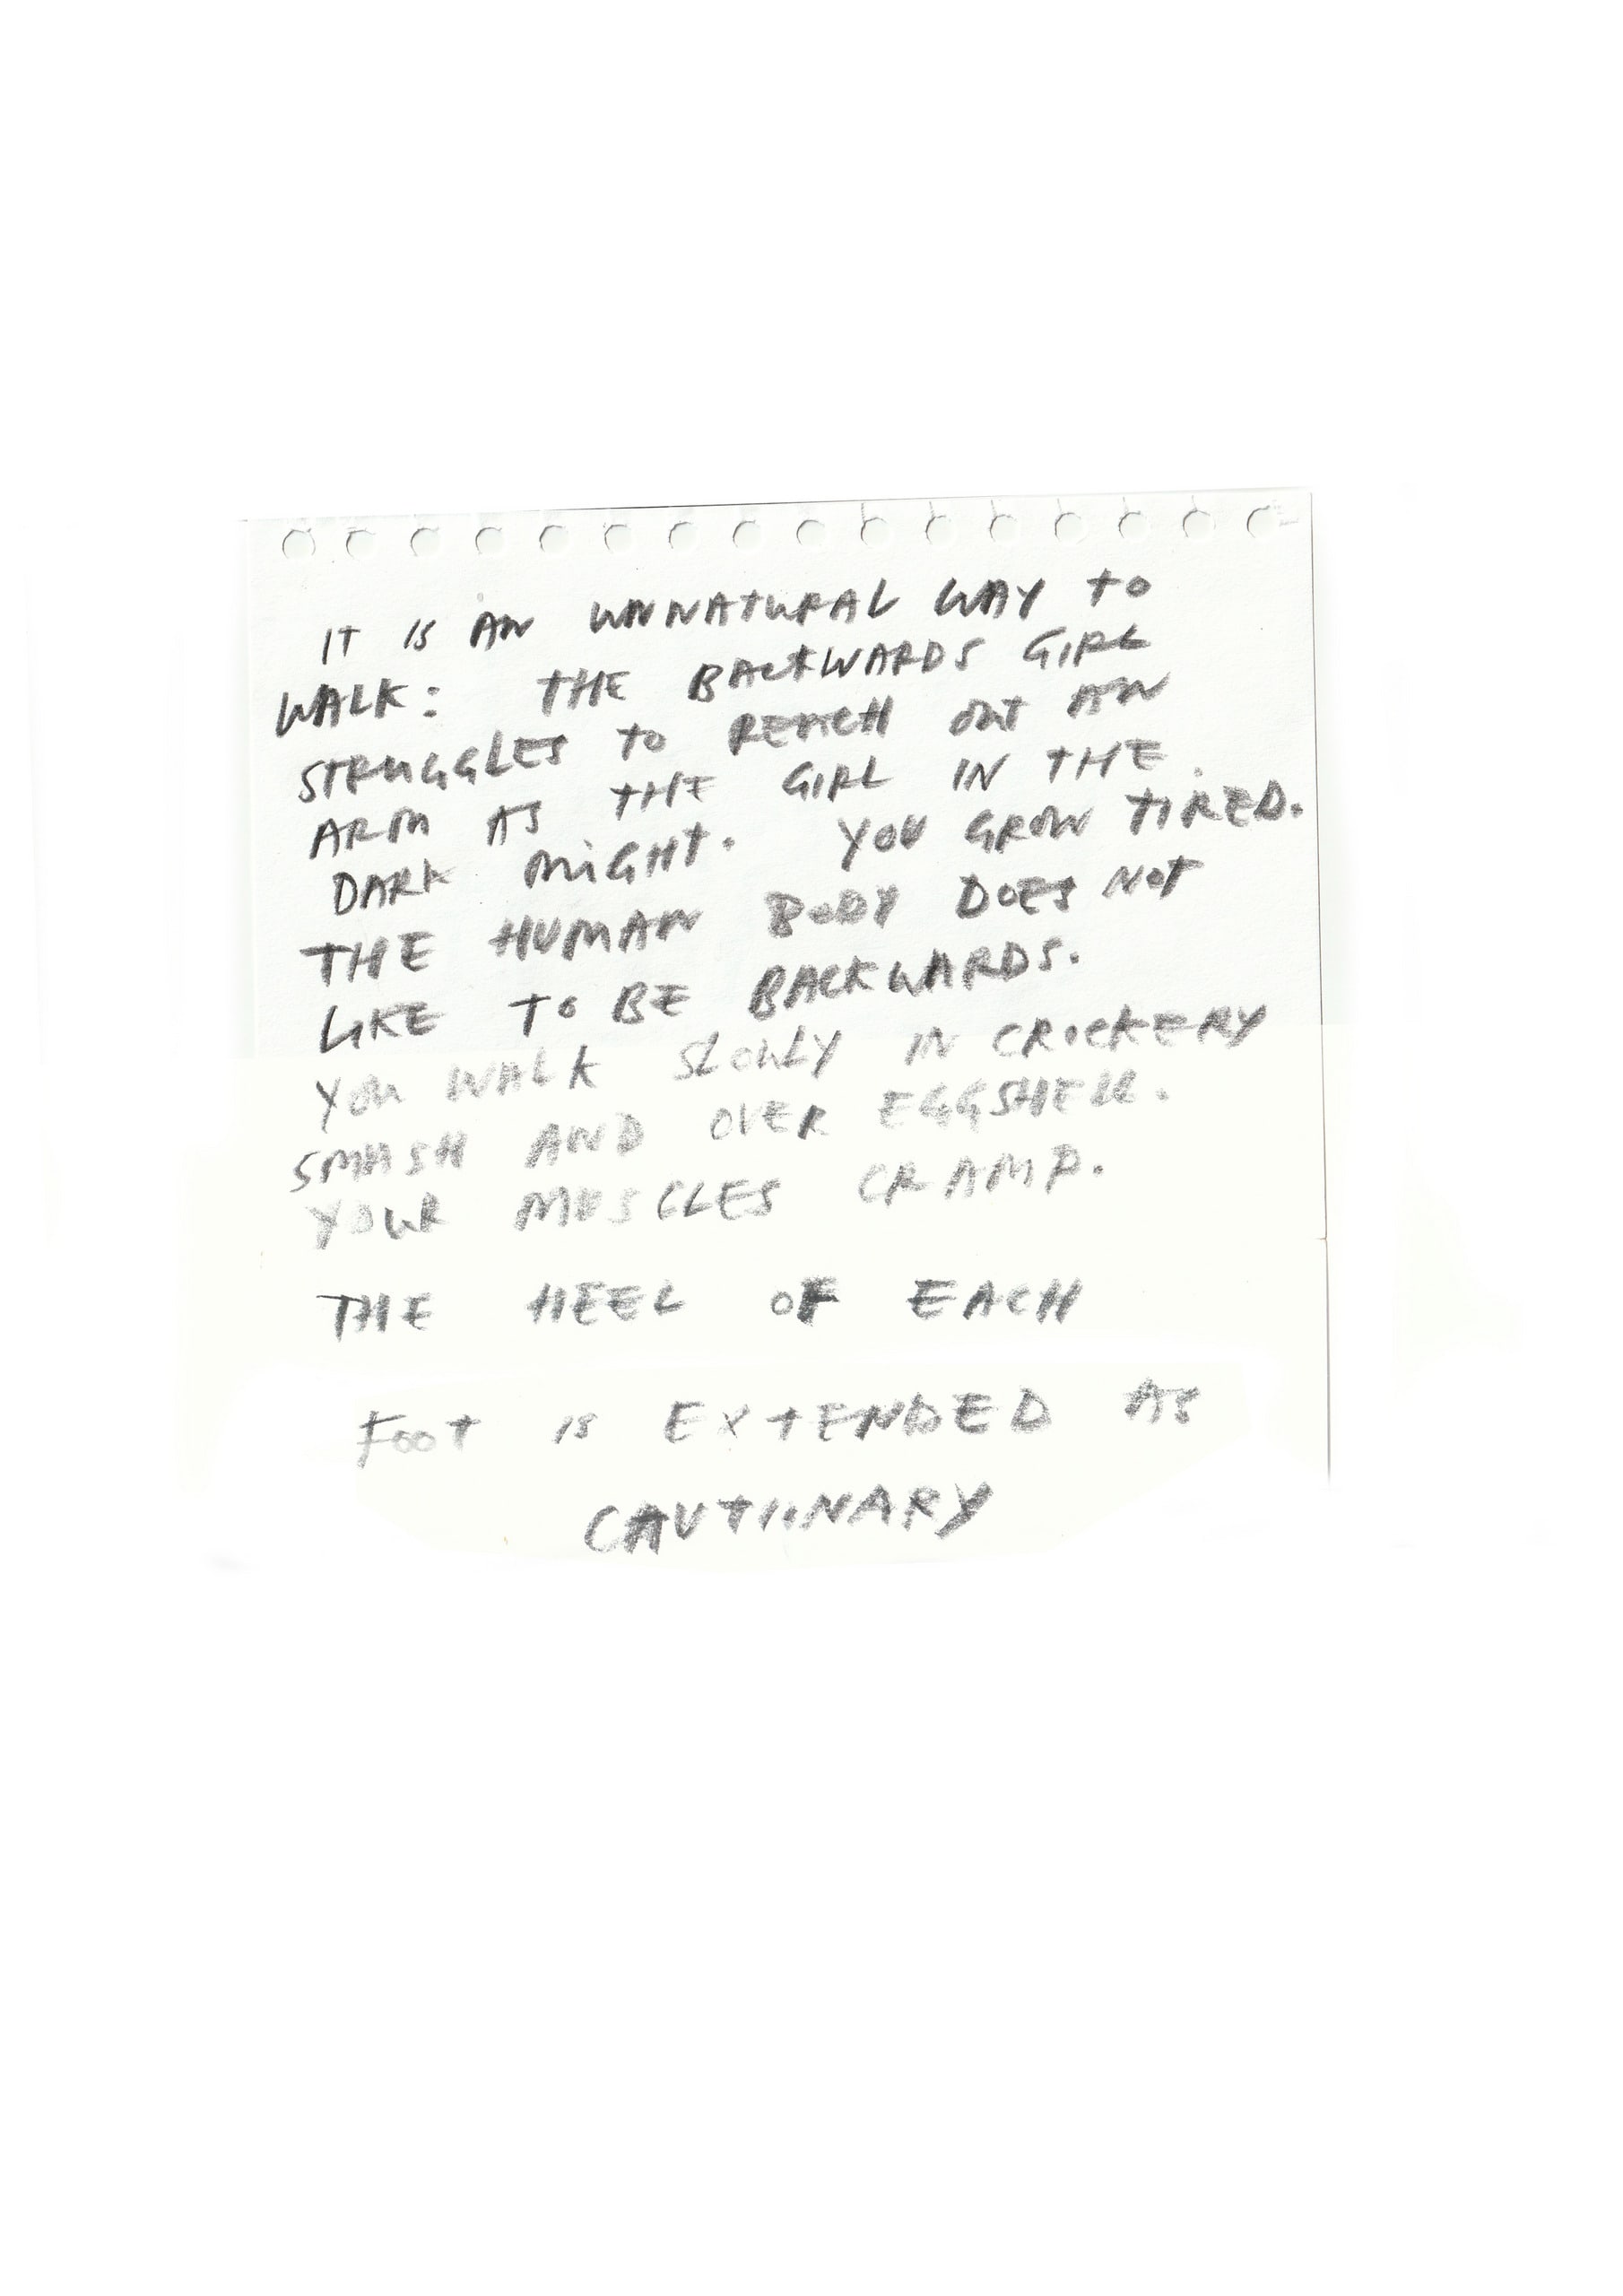 IT IS AN UNNATURAL WAY TO
WALK: THE BACKWARDS GIRL
STRUGGLES TO REACH OUT AN
ARM AS THE GIRL IN THE
DARK MIGHT. YOU GROW TIRED.
THE HUMAN BODY DOES NOT
LIKE TO BE BACKWARDS.
YOU WALK SLOWLY IN CROCKERY
SMASH AND OVER EGGSHELL.
YOUR MUSCLES CRAMP.
THE HEEL OF EACH
FOOT IS EXTENDED AS
CAUTIONARY